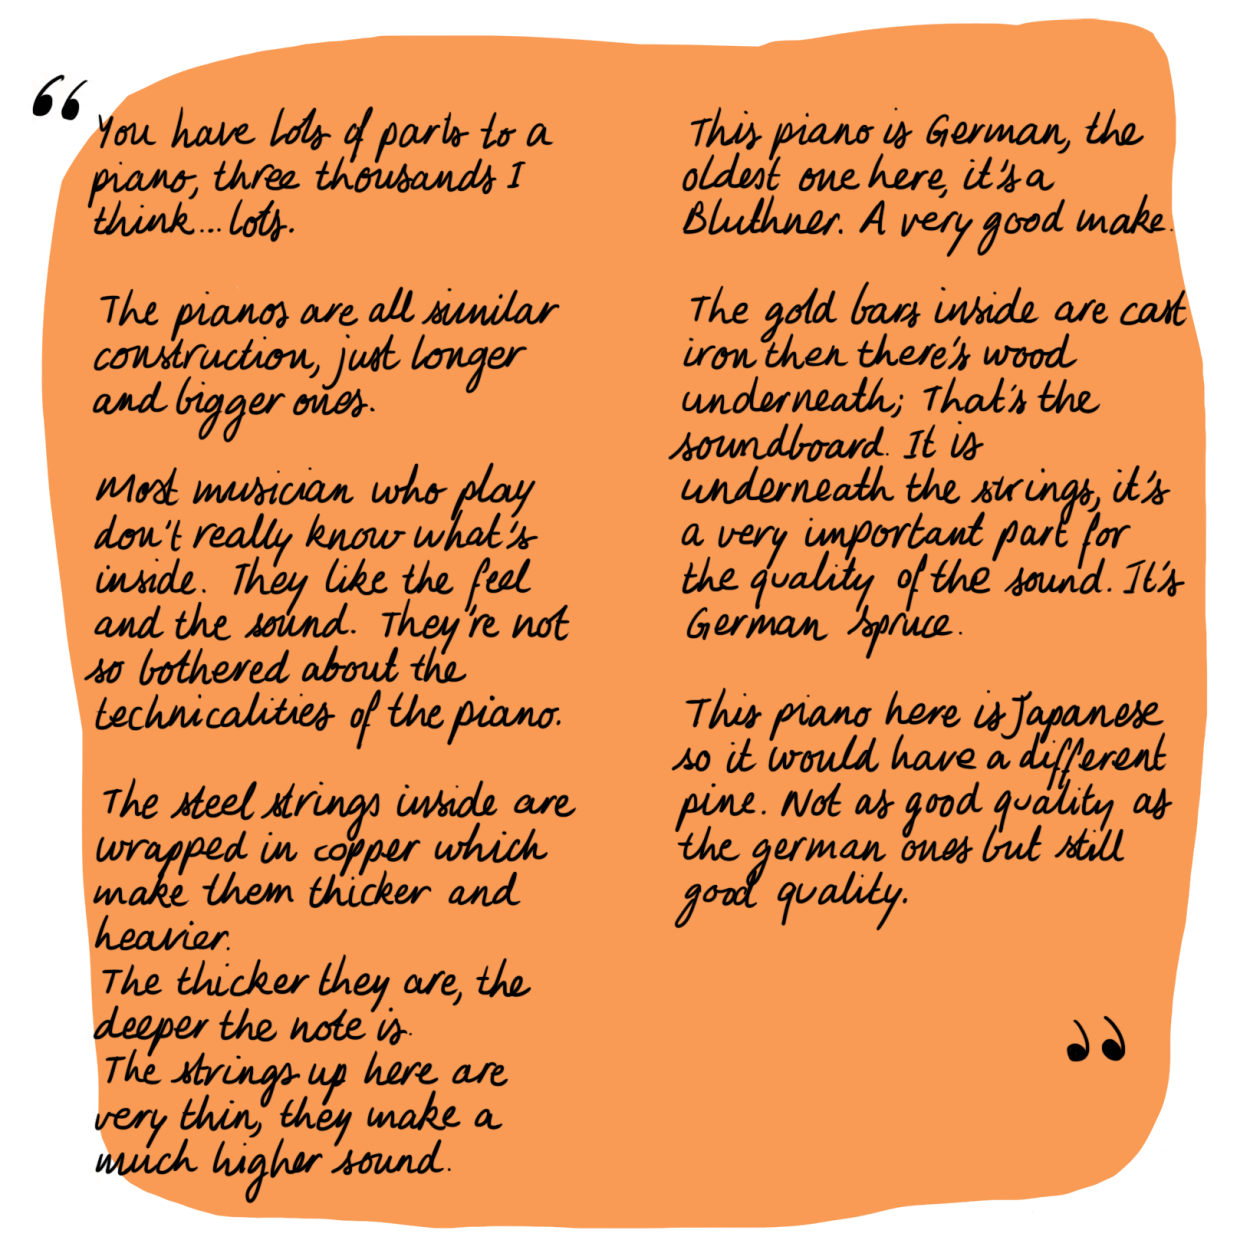 “ You have lots of parts to a
piano, three thousands I
think... lots.
The pianos are all similar
construction, just longer
and bigger ones.
Most musician who play
don't really know what's
inside. They like the feel
and the sound. They're not
so bothered about the
technicalities of the piano.
The steel strings inside are
wrapped in copper which
make them thicker and
heavier.
The thicker they are, the
deeper the note is.
The strings up here are
very thin, they make a
much higher sound.
This piano is German, the
oldest one here, it's a
Bluthner. A very good make.
The gold bars inside are cast
iron then there's wood
underneath; That's the
soundboard. It is
underneath the strings, it's
a very important part for
the quality of the sound. It's
German Spruce.
This piano here is Japanese
so it would have a different
pine. Not as good quality as
the german ones but still
good quality.
”